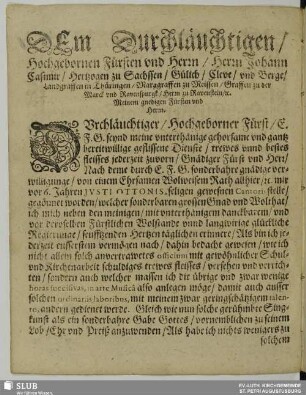 DEm Durchläuchtigen /
Hochgebornen Fürsten vnd Herrn / Herrn Johann
Casimir / Hertzogen zu Sachssen / Gülich / Cleve / vnd Berge /
Landgraffen in Thüringen / Marggraffen zu Meissen / Graffen zu der
Marck vnd Ravenspurgk / Herrn zu Ravenstein / ꝛc.
Meinem gnedigen Fürsten vnd
Herrn.
DUrchläuchtiger / Hochgeborner Fürst / E.
F. G. seynd meine vnterthänige gehorsame vnd gantz
bereitwillige geflissene Dienste / trewes vnnd bestes
fleisses jederzeit zuvorn / Gnädiger Fürst vnd Herr /
Nach deme durch E. F. G. sonderbahre gnädige ver-
willigung / von einem Ehrsamen Wolweisen Rath allhier / ꝛc. mir
vor 6. Jahren JUSTI OTTONIS, seligen gewesen Cantoris stelle /
gegönnet worden / welcher sonderbaren grossen Gnad vnd Wolthat /
ich mich neben den meinigen / mit vnterthänigem danckbaren / vnd
vor deroselben Fürstlichen Wolstand vnnd langwirige glückliche
Regierunge / seufftzenden Hertzen täglichen erinnere / Als bin ich je-
derzeit eusserstem vermögen nach / dahin bedacht gewesen / wie ich
nicht allein solch anvertrawetes officium mit gewöhnlicher Schul-
vnd Kirchenarbeit schuldiges trewes fleisses / versehen vnd verrich-
ten / sondern auch welcher massen ich die übrige vnd zwar wenige
horas succisivas, in arte Musicâ also anlegen möge / damit auch ausser
solchen ordinariis laboribus, mit meinem zwar geringschätzigem talen-
to, andern gedienet werde. Gleich wie nun solche gerühmbte Sing-
kunst als ein sonderbahre Gabe Gottes / vornemblichen zu seinem
Lob / Ehr vnd Preiß anzuwenden / Als habe ich nichts wenigers zu
solchem
SLUB
Wir führen Wissen.
EV.-LUTH. KIRCHGEMEINDE
ST. PETRI AUGUSTUSBURG